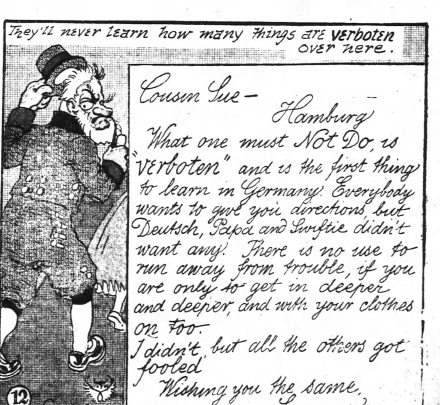 They'll never learn how many things are verboten
over here.
Cousin Sue—
Hamburg
What one must Not Do, is
"verboten" and is the first thing
to learn in Germany. Everybody
wants to give you directions, but
Deutsch, Papa and Swiftie didn't
want any. There is no use to
run away from trouble, if you
are only to get in deeper
and deeper, and with your clothes
on too.
I didn't, but all the others got
fooled
Wishing you the same,
12